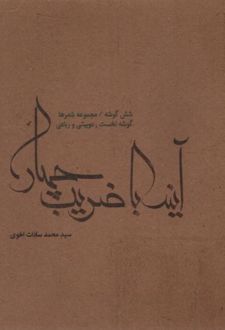 شش گوشه / مجموعه شعرها
گوشه نخست , دوبیتی و رباعی
آینه با ضریب چهار
سید محمد سادات اخوی